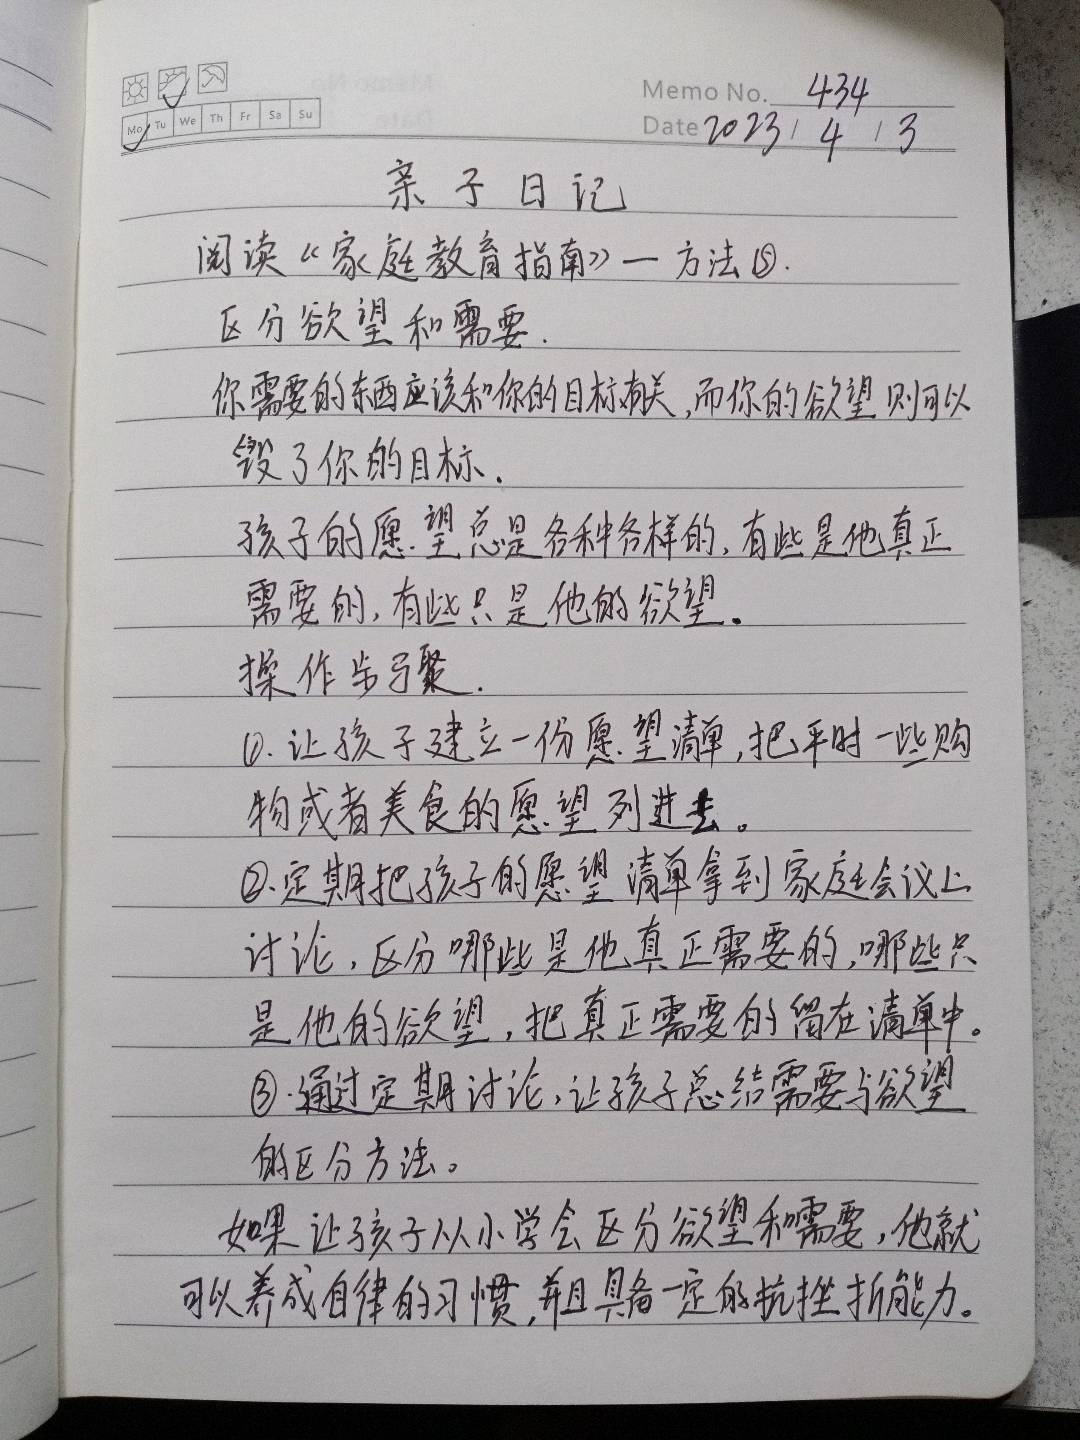 Memo No. 434
Mo Tu We Th Fr Sa Su
Date 2023 / 4 / 3
亲子日记
阅读《家庭教育指南》一方法⑤.
区分欲望和需要.
你需要的东西应该和你的目标有关,而你的欲望则可以
毁了你的目标.
孩子的愿望总是各种各样的,有些是他真正
需要的,有些只是他的欲望。
操作步骤.
①.让孩子建立一份愿望清单,把平时一些购
物或者美食的愿望列进去。
②.定期把孩子的愿望清单拿到家庭会议上
讨论,区分哪些是他真正需要的,哪些只
是他的欲望,把真正需要的留在清单中。
③.通过定期讨论,让孩子总结需要与欲望
的区分方法。
如果让孩子从小学会区分欲望和需要,他就
可以养成自律的习惯,并且具备一定的抗挫折能力。